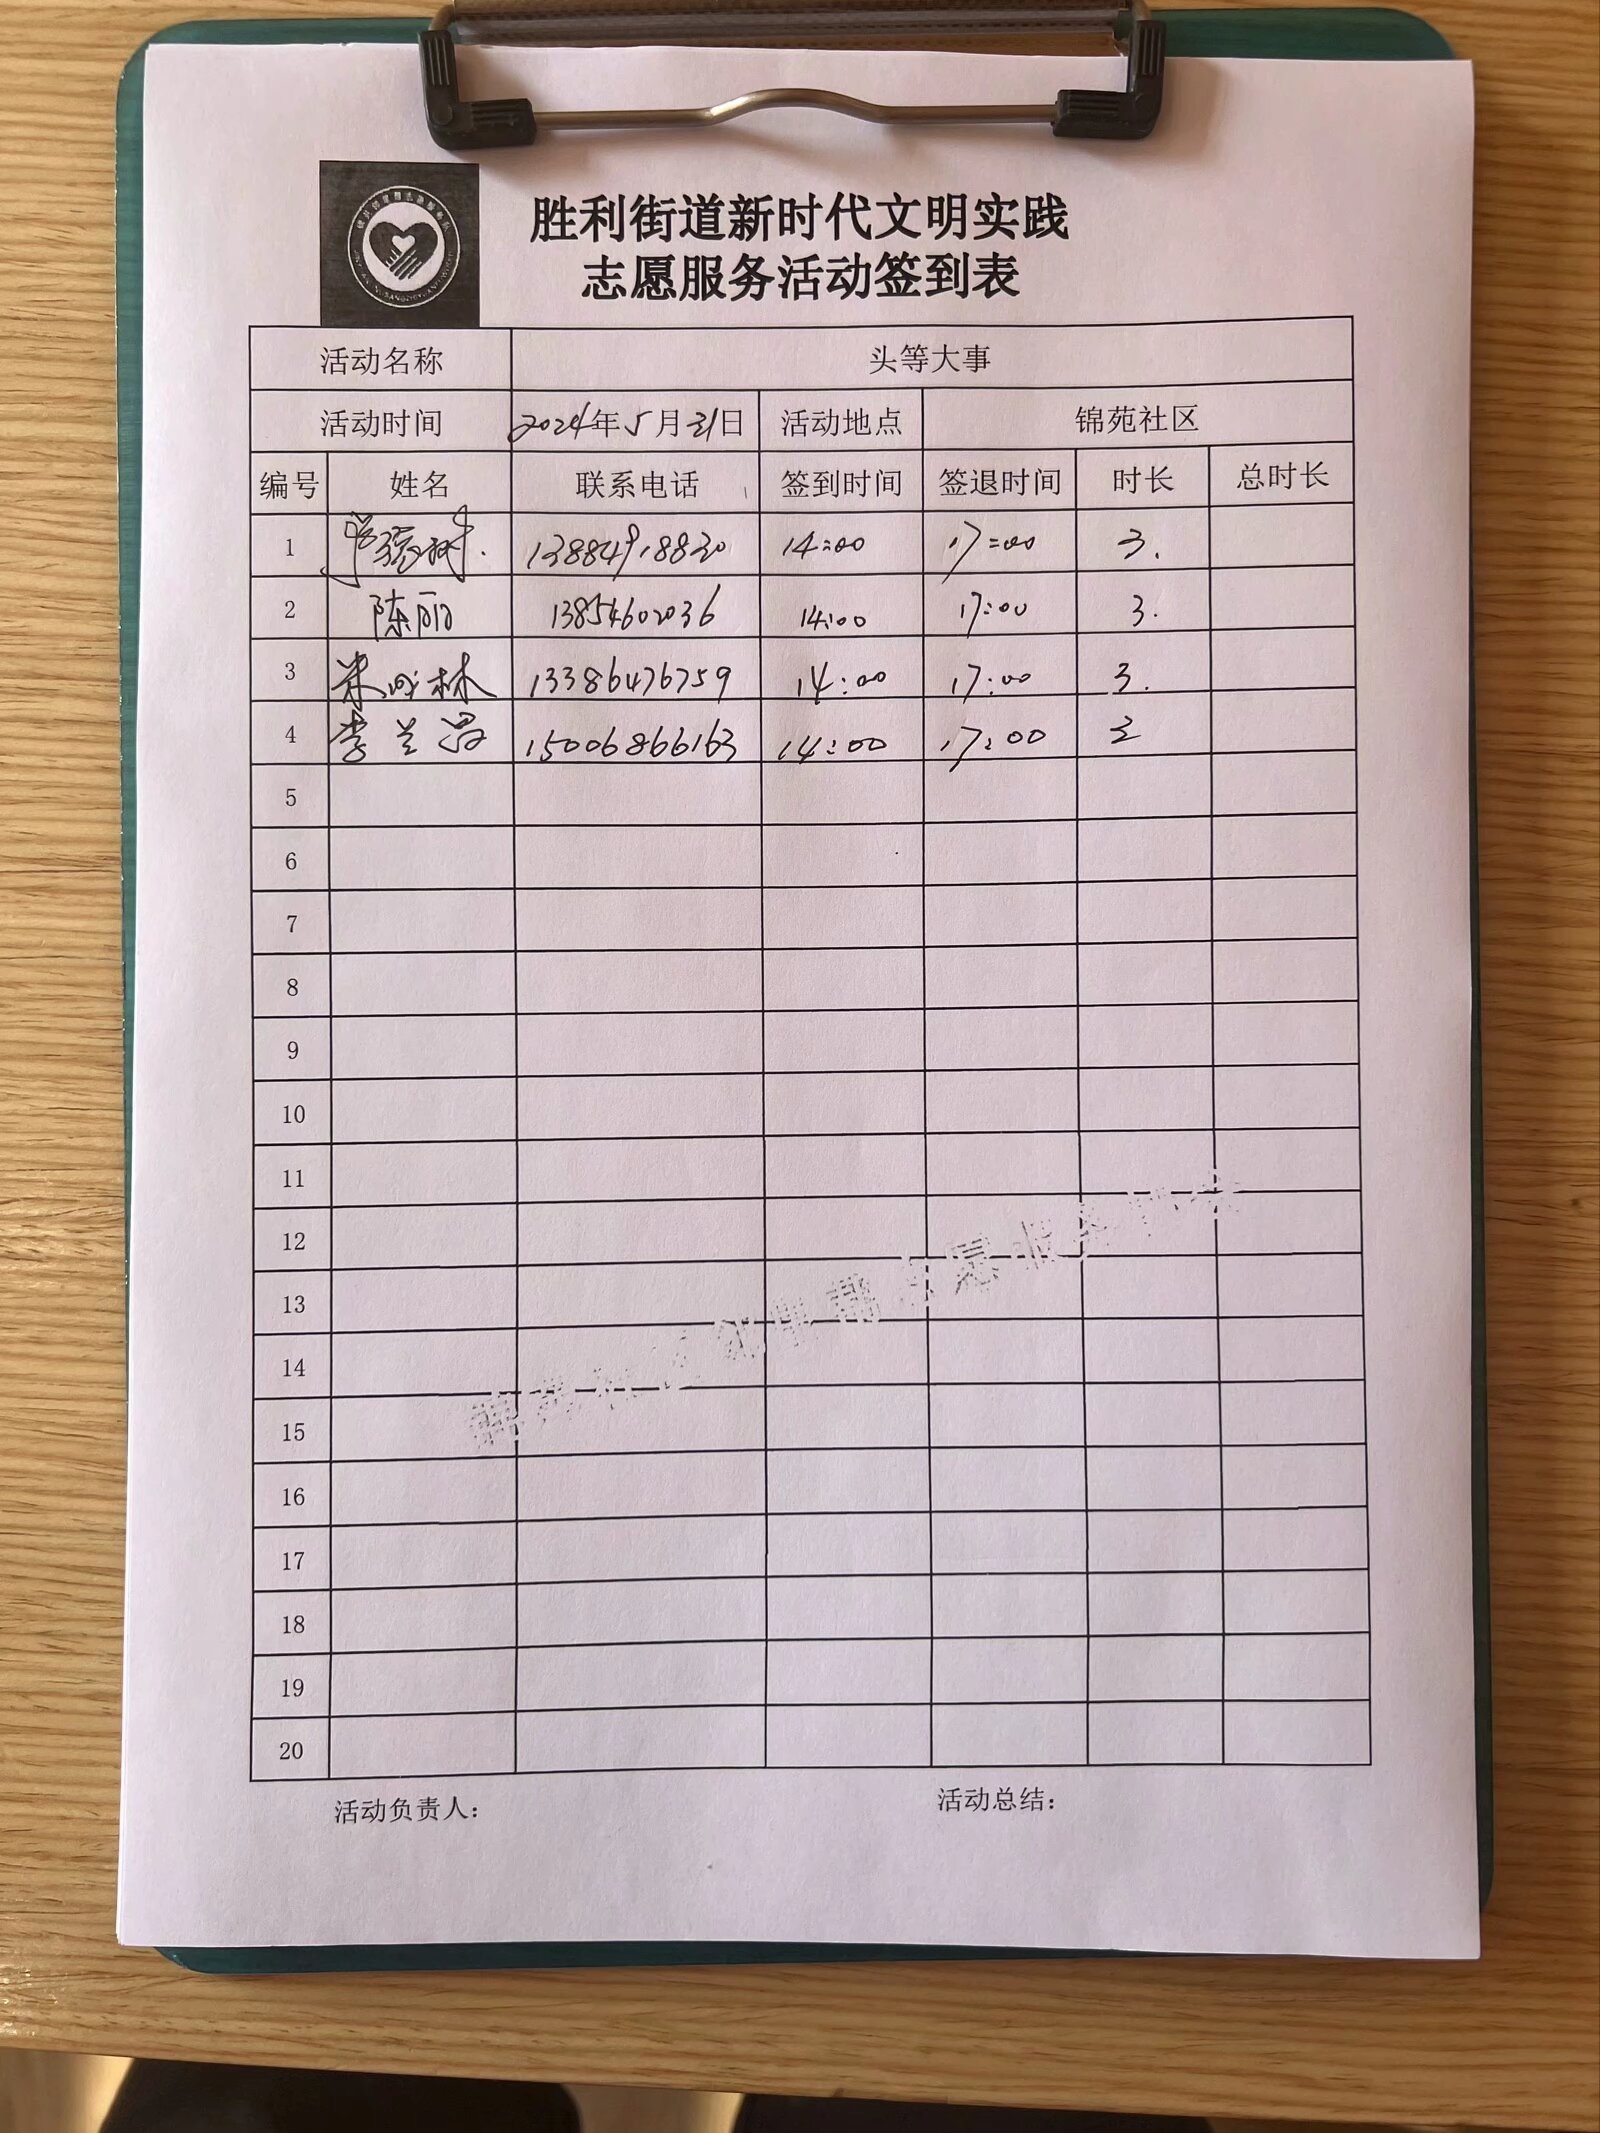 胜利街道新时代文明实践
志愿服务活动签到表
活动名称 头等大事
活动时间 2024年5月31日 活动地点 锦苑社区
编号 姓名 联系电话 签到时间 签退时间 时长 总时长
1 13884918830 14:00 17:00 3.
2 陈丽 13854602036 14:00 17:00 3.
3 林 13386476759 14:00 17:00 3.
4 李兰 15006866163 14:00 17:00 3
5
6
7
8
9
10
11
12
13
14
15
16
17
18
19
20
活动负责人： 活动总结：